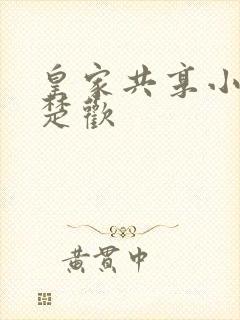 皇家共享小
楚歡
黄贯中